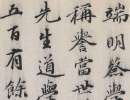 端明蔡學
稱譽當世
先生道學
五百有餘